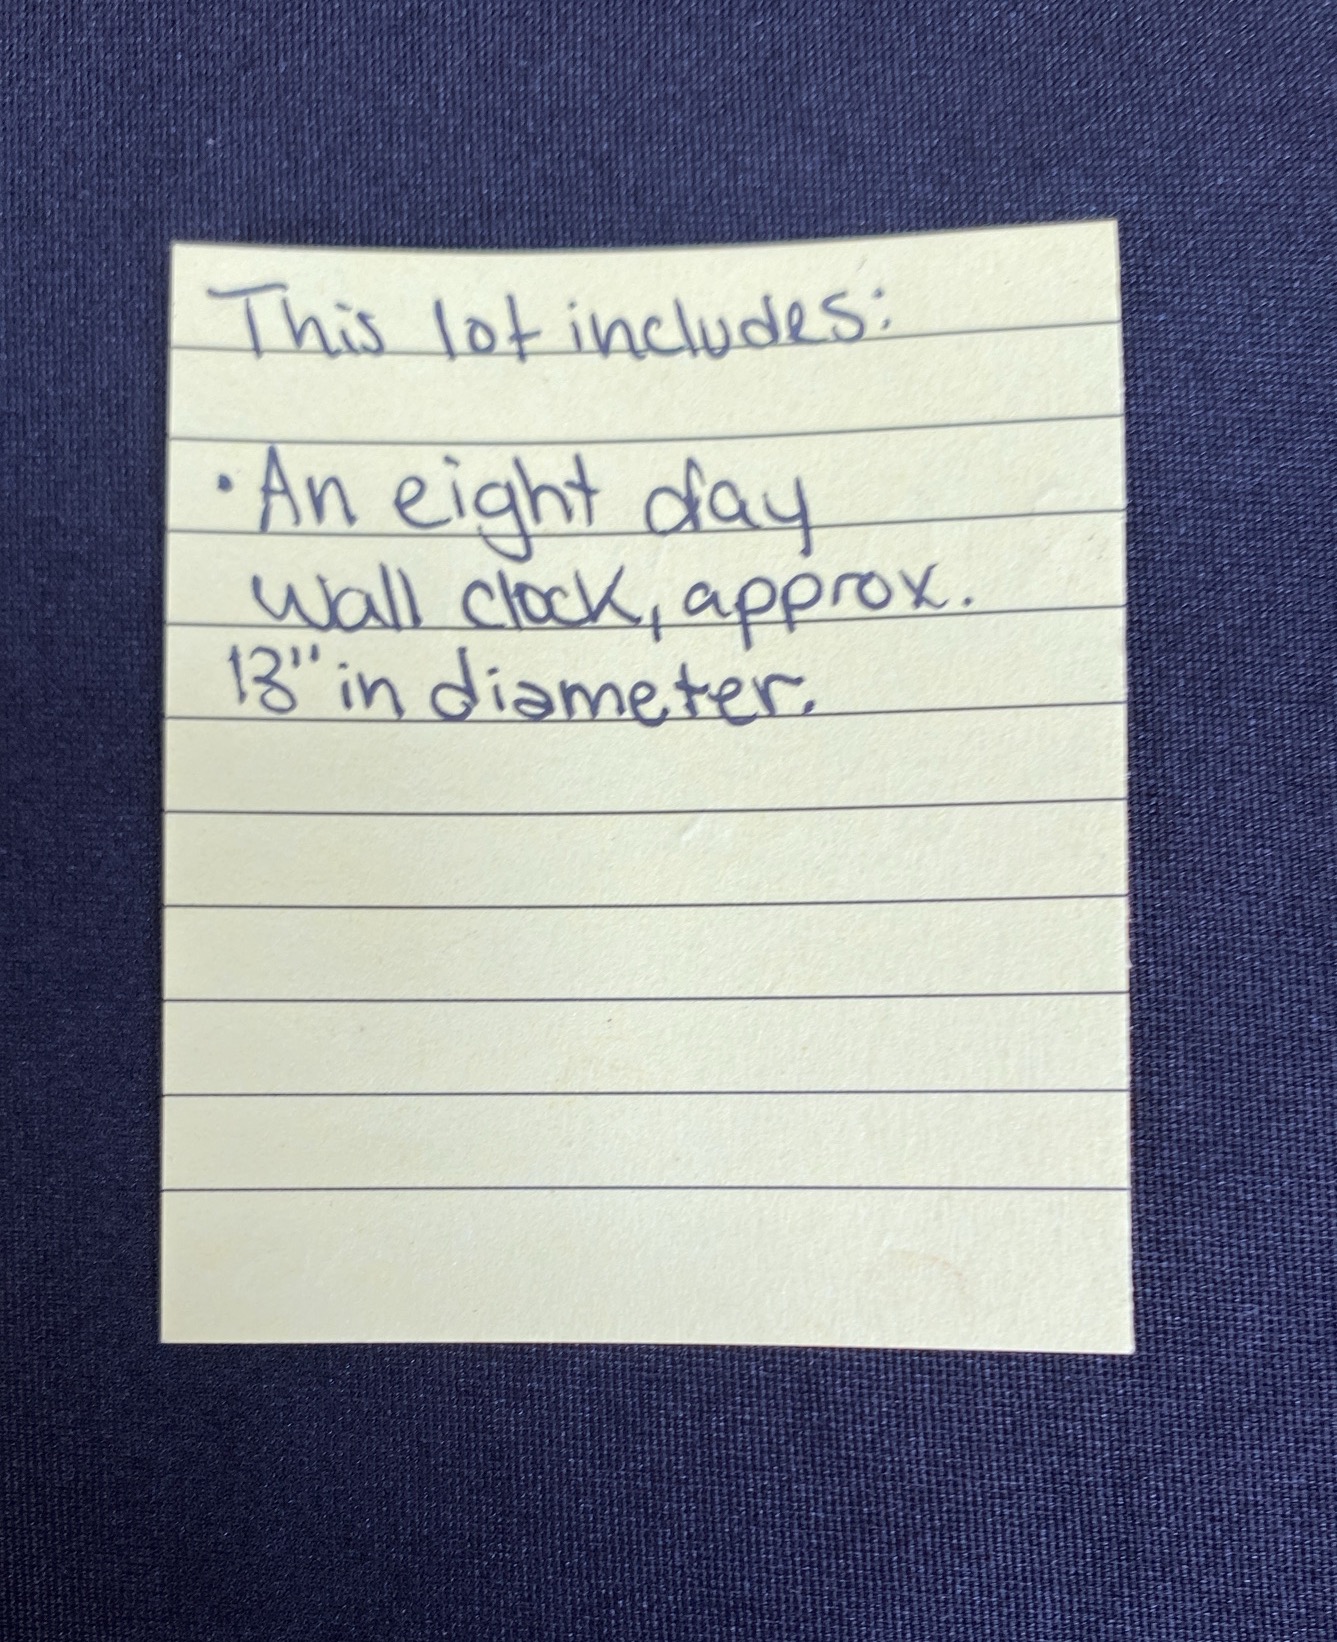 This lot includes:
• An eight day
wall clock, approx.
13" in diameter.